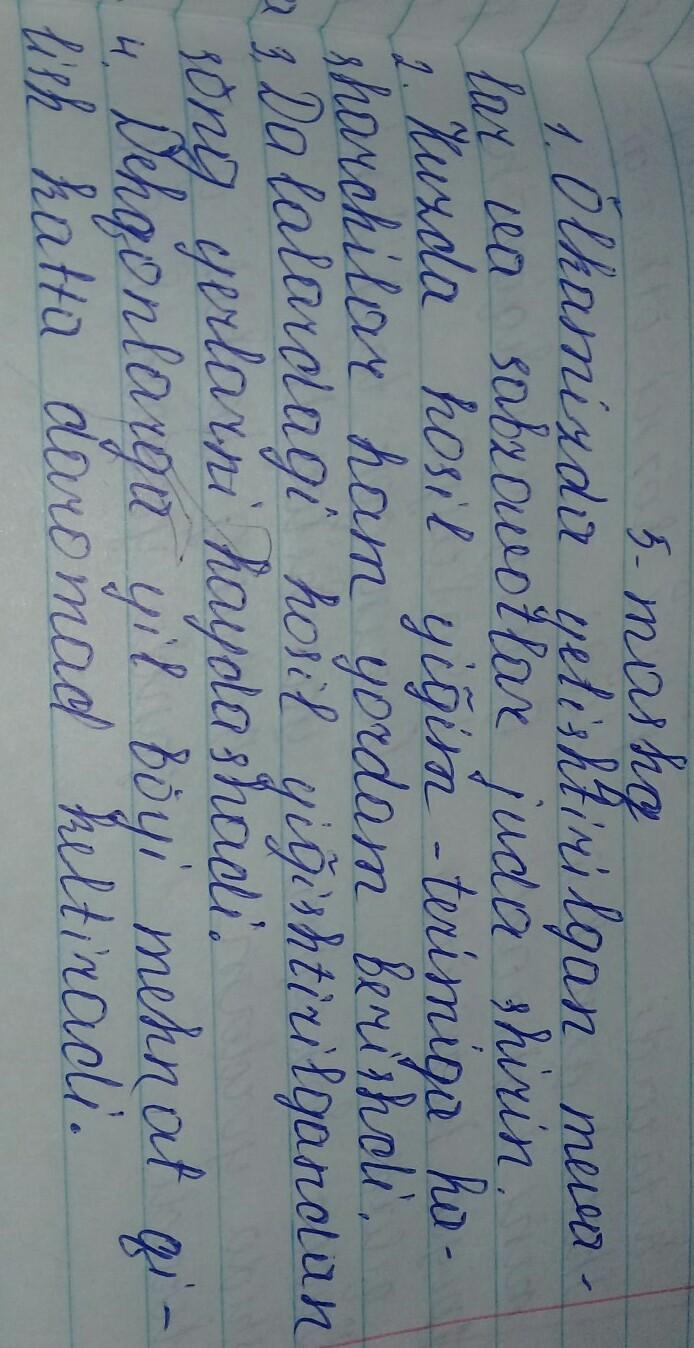 5-mashq
1. Õlkamizda yetishtirilgan meva-
lar va sabzavotlar juda shirin.
2. Kuzda hosil yiğim-terimiga ha-
sharchilar ham yordam berishdi.
3. Dalalardagi hosil yiğishtirilgandan
sõng yerlarni haydashadi.
4. Dehqonlarga yil bõyi mehnat qi-
lish katta daromad keltiradi.